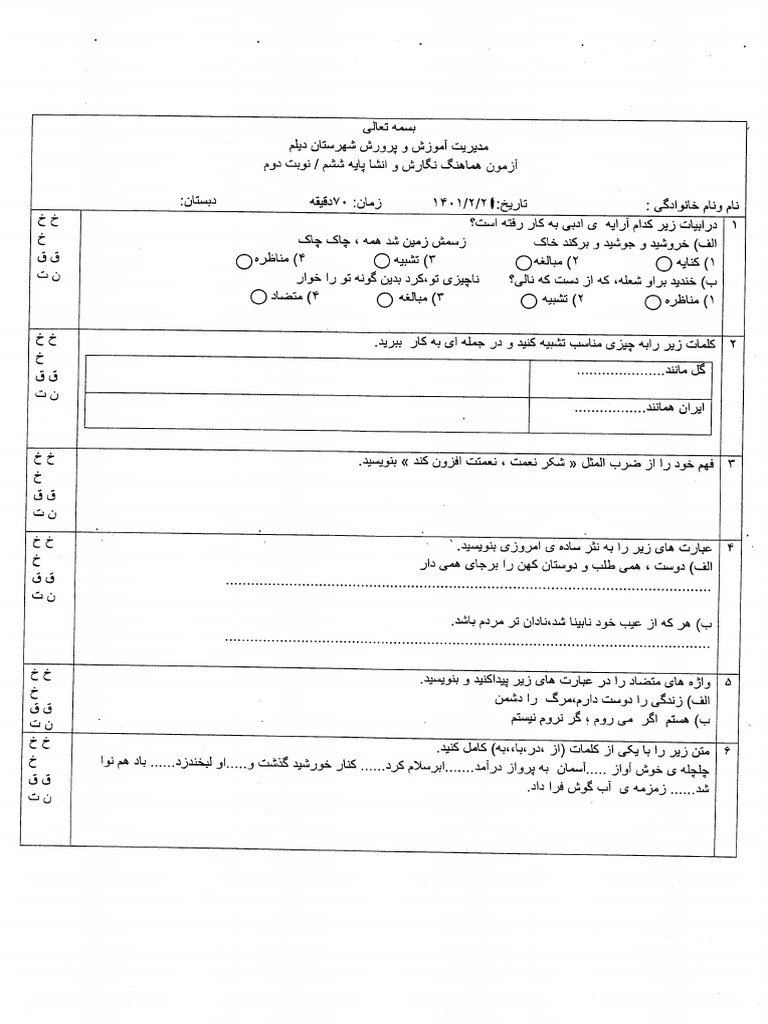 بسمه تعالی
مدیریت آموزش و پرورش شهرستان دیلم
آزمون هماهنگ نگارش و انشا پایه ششم / نوبت دوم
نام ونام خانوادگی : تاریخ:۱۴۰۱/۲/۲۱ زمان: ۷۰دقیقه دبستان:
۱ درابیات زیر کدام آرایه ی ادبی به کار رفته است؟ خ خ
الف) خروشید و جوشید و برکند خاک زسمش زمین شد همه ، چاک چاک خ
۱) کنایه ۲) مبالغه ۳) تشبیه ۴) مناظره ق ق
ب) خندید براو شعله، که از دست که نالی؟ ناچیزی تو،کرد بدین گونه تو را خوار ن ت
۱) مناظره ۲) تشبیه ۳) مبالغه ۴) متضاد
۲ کلمات زیر رابه چیزی مناسب تشبیه کنید و در جمله ای به کار ببرید. خ خ
خ
گل مانند..................... ق ق
ن ت
ایران همانند.................
۳ فهم خود را از ضرب المثل « شکر نعمت ، نعمتت افزون کند » بنویسید. خ خ
خ
ق ق
ن ت
۴ عبارت های زیر را به نثر ساده ی امروزی بنویسید. خ خ
الف) دوست ، همی طلب و دوستان کهن را برجای همی دار خ
.................................................................................................... ق ق
ن ت
ب) هر که از عیب خود نابینا شد،نادان تر مردم باشد.
....................................................................................................
۵ واژه های متضاد را در عبارت های زیر پیداکنید و بنویسید. خ خ
الف) زندگی را دوست دارم،مرگ را دشمن خ
ب) هستم اگر می روم ، گر نروم نیستم ق ق
ن ت
۶ متن زیر را با یکی از کلمات (از ،در،با،،به) کامل کنید. خ خ
چلچله ی خوش آواز .....آسمان به پرواز درآمد.......ابرسلام کرد...... کنار خورشید گذشت و.....او لبخندزد...... باد هم نوا خ
شد...... زمزمه ی آب گوش فرا داد. ق ق
ن ت